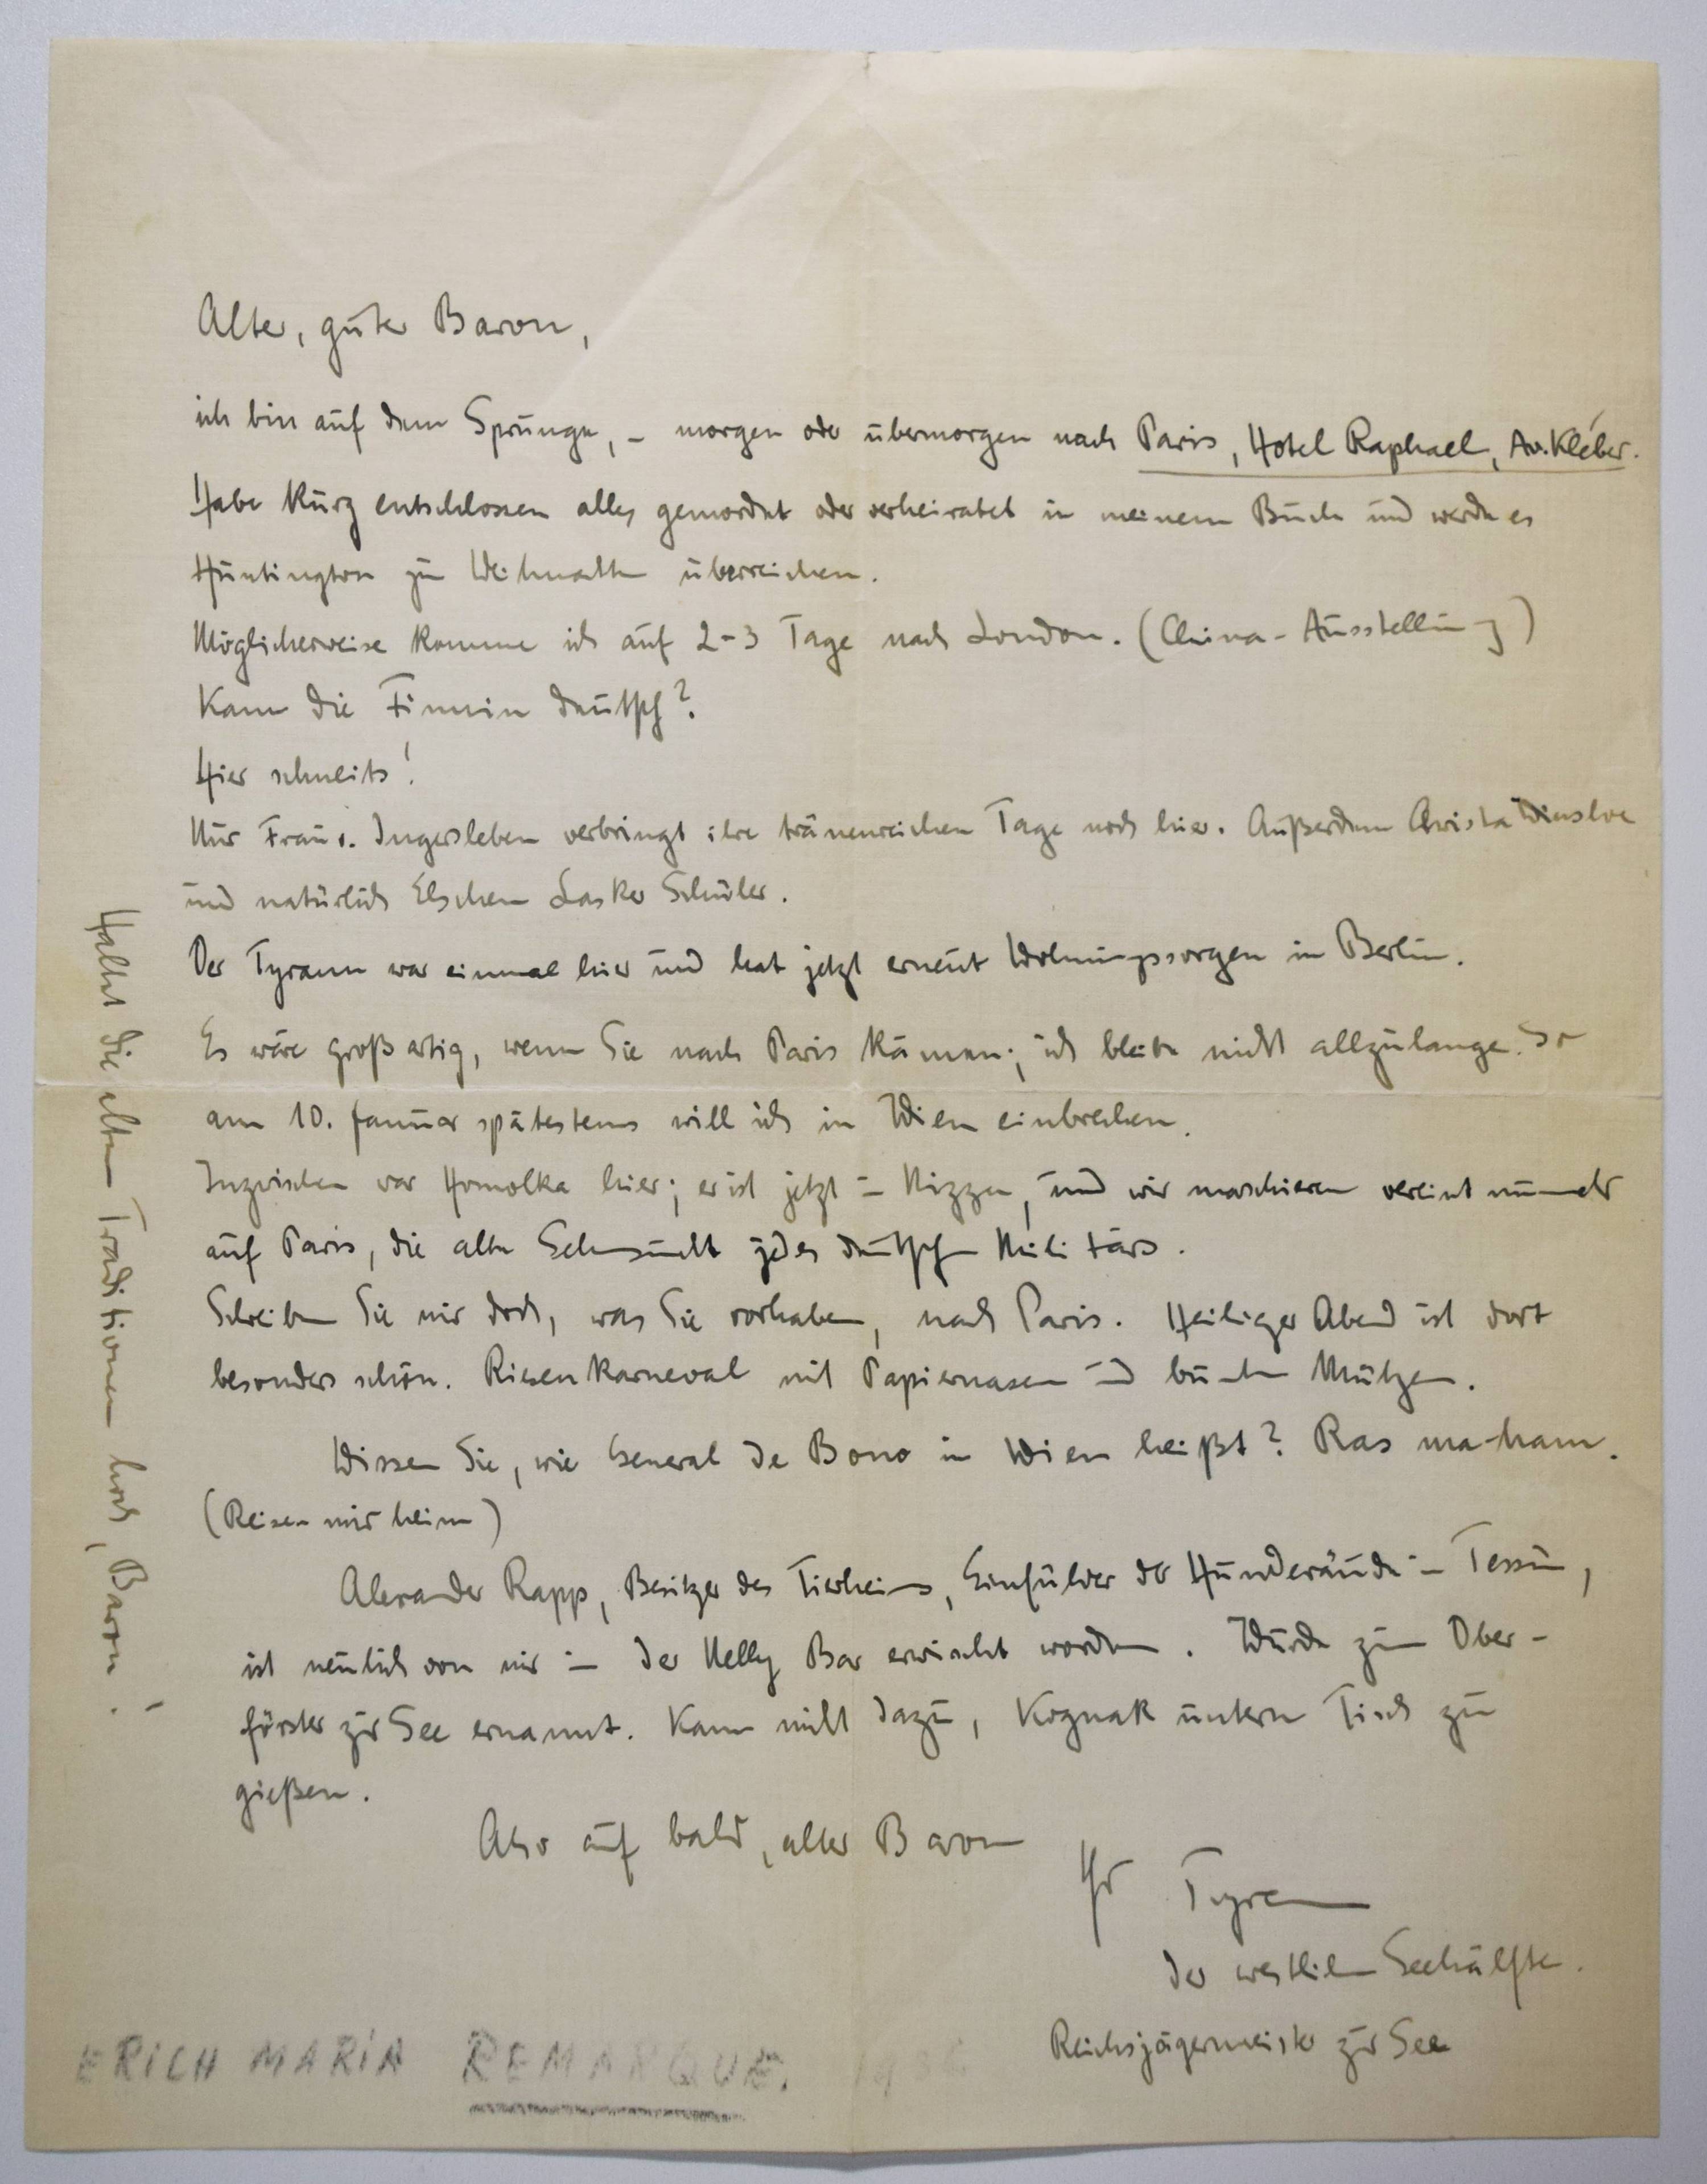 Alter, guter Baron,
ich bin auf dem Sprunge, – morgen oder übermorgen nach Paris, Hotel Raphael, Av. Kléber.
Habe kurz entschlossen alles gemordet oder verheiratet in meinem Buch und werde es
Huntington zu Weihnachten überreichen.
Möglicherweise komme ich auf 2-3 Tage nach London. (China-Ausstellung)
Kann die Finnin deutsch?
Hier schneits!
Nur Frau v. Ingersleben verbringt ihre tränenreichen Tage noch hier. Außerdem Christa Winsloe
und natürlich Elschen Lasker Schüler.
Der Tyrann war einmal hier und hat jetzt erneut Wohnungssorgen in Berlin.
Es wäre großartig, wenn Sie nach Paris kämen; ich bleibe nicht allzulange. So
am 10. Januar spätestens will ich in Wien einbrechen.
Inzwischen war Homolka hier; er ist jetzt in Nizza, und wir marschieren vereint nunmehr
auf Paris, die alte Sehnsucht jedes deutschen Militärs.
Schreiben Sie mir doch, was Sie vorhaben, nach Paris. Heiliger Abend ist dort
besonders schön. Riesenkarneval mit Papiernasen und bunten Mützen.
Wissen Sie, wie General de Bono in Wien heißt? Ras ma-ham.
(Reisen mir heim)
Alexander Rapp, Besitzer des Tierheims, Einführer der Hunderäude in Tessin,
ist neulich von mir in der Nelly Bar erwischt worden. Wurde zum Ober-
förster zur See ernannt. Kann nicht dazu, Kognak untern Tisch zu
gießen.
Also auf bald, alter Baron
Ihr Tyrann
der westlichen Seehälfte.
Reichsjägermeister zur See
Haltet die alten Traditionen hoch, Baron!
ERICH MARIA REMARQUE.